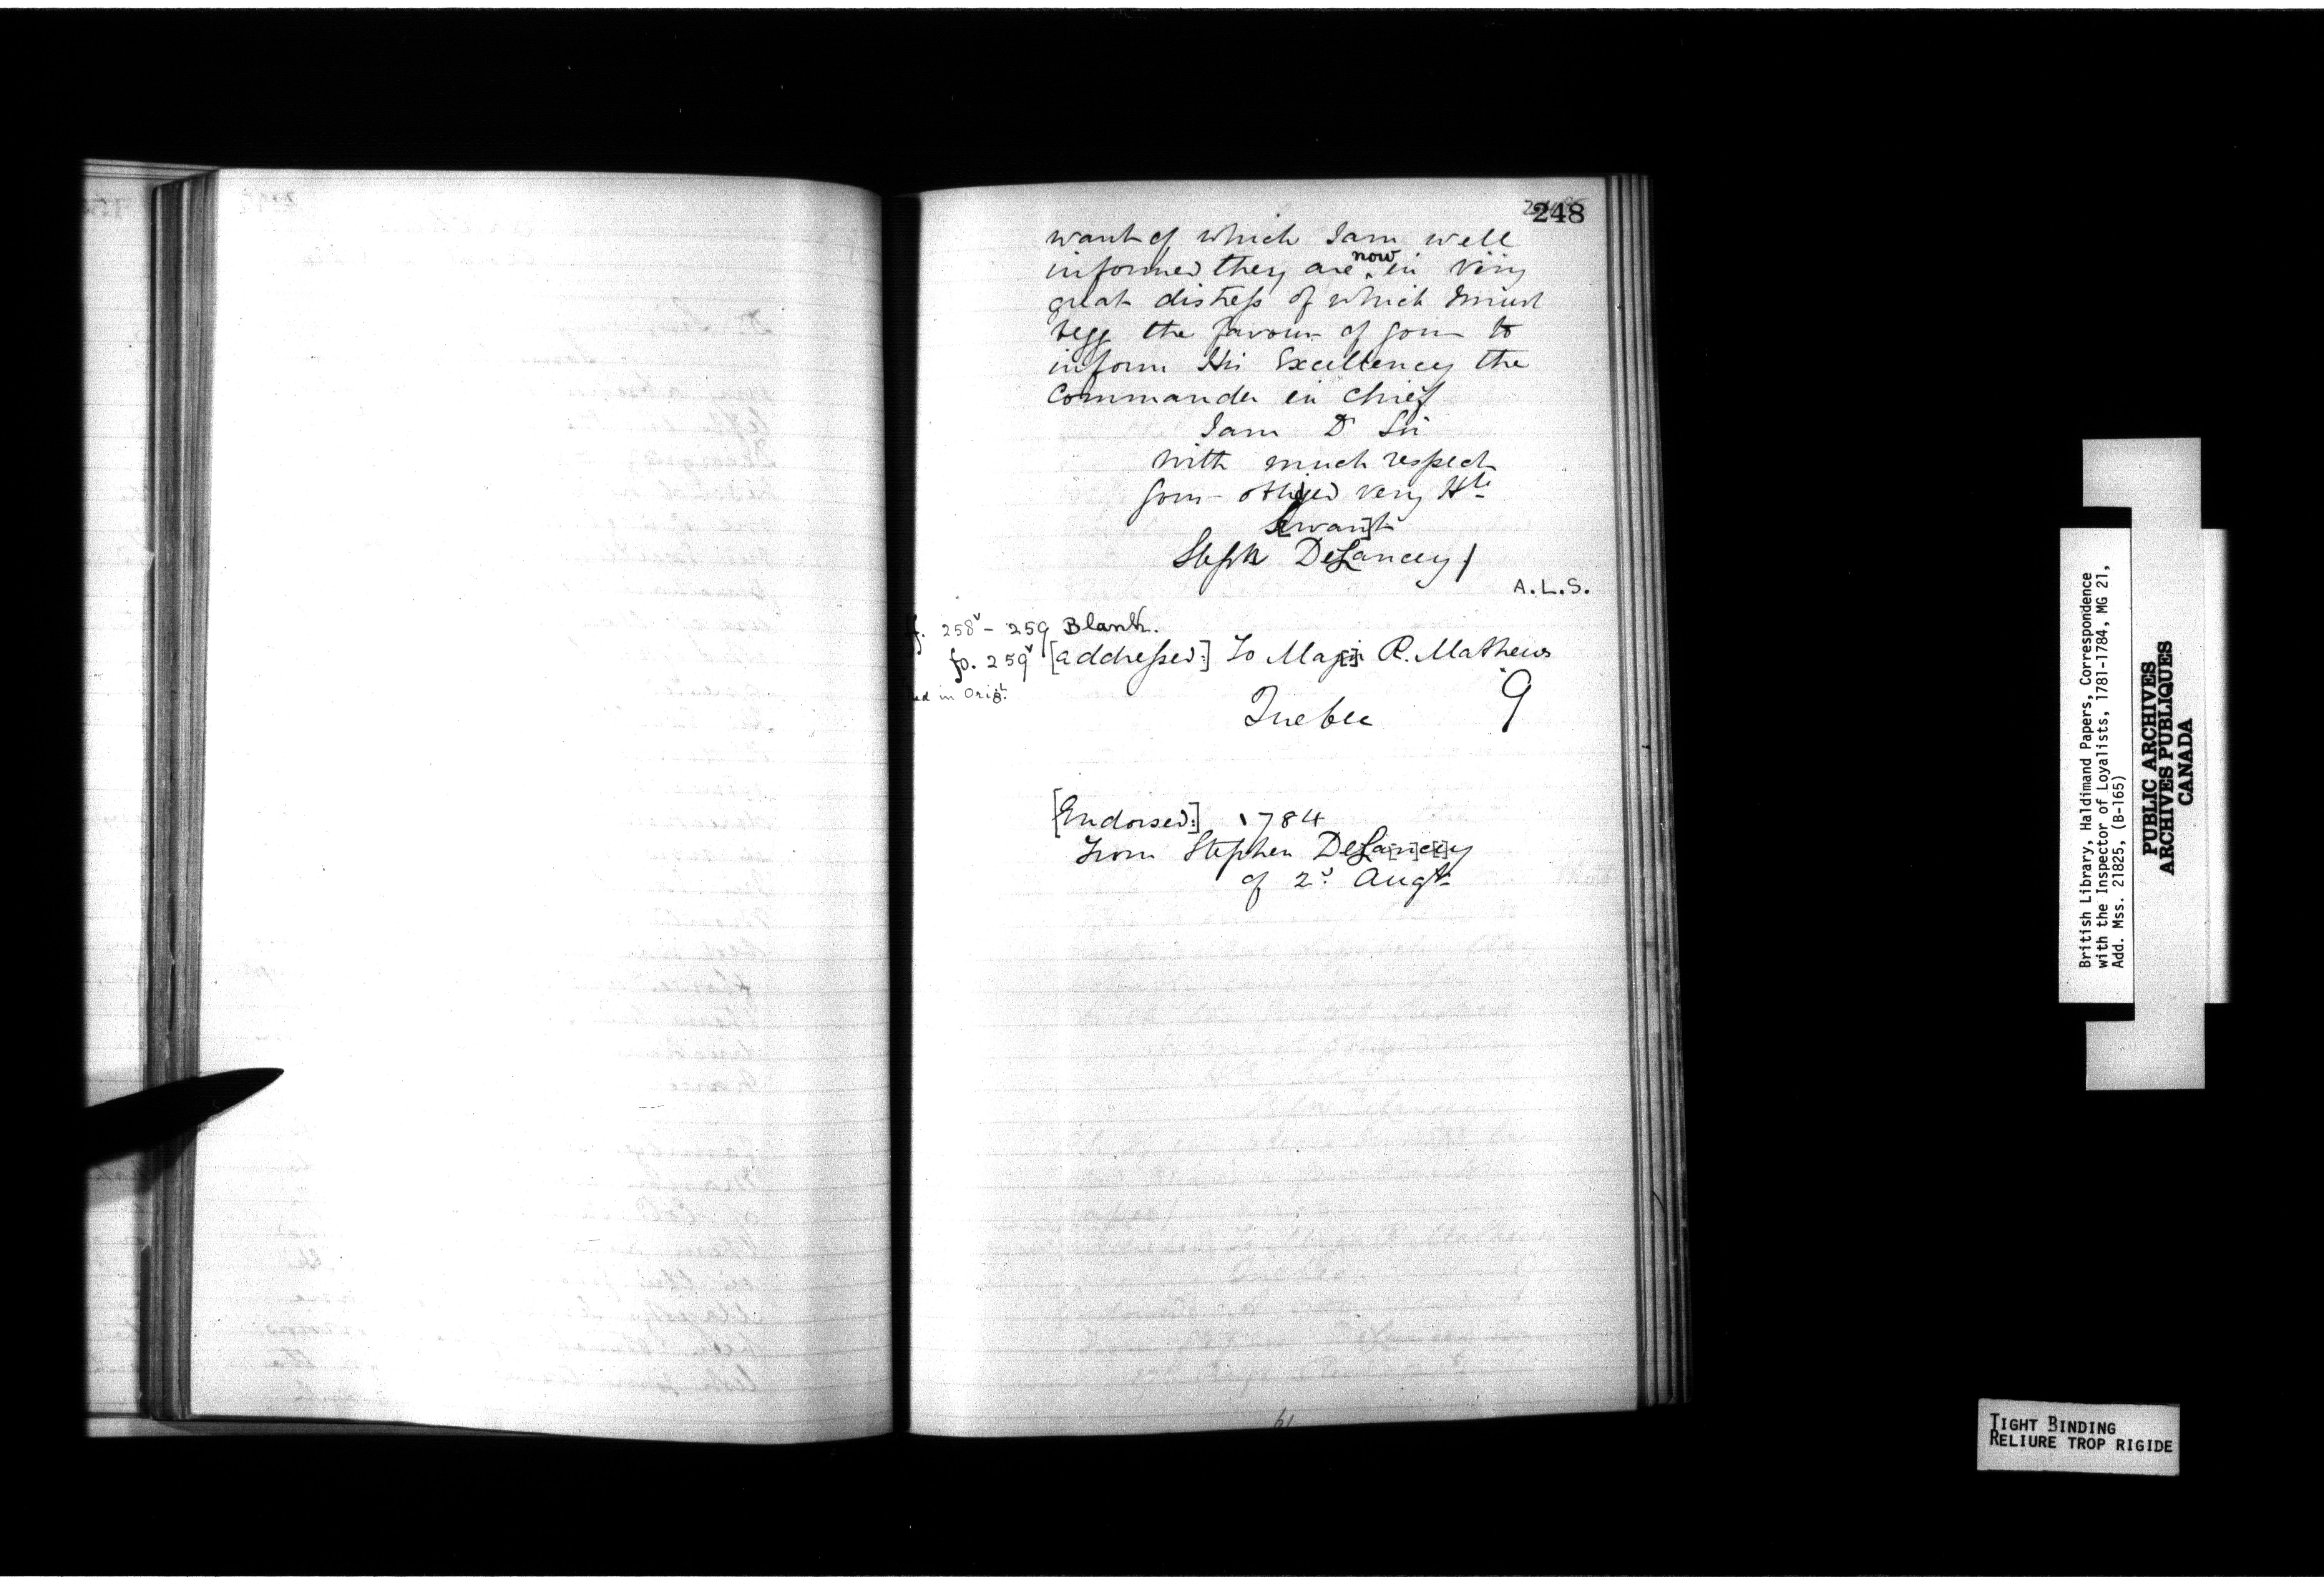 248
want of which I am well
informed they are now in very
great distress of which I must
begg the favour of you to
inform His Excellency the
Commander in Chief
I am Dr Sir
with much respect
your obliged very Hle
Servant
Stephn DeLancey
A.L.S.
f. 258v - 259 Blank.
fo. 259v [addressed:] To Major R. Mathews
in Orig.
Quebec 9
[Endorsed:] 1784
From Stephen DeLancey
of 2d Augt
British Library, Haldimand Papers, Correspondence
with the Inspector of Loyalists, 1781-1784, MG 21,
Add. Mss. 21825, (B-165)
PUBLIC ARCHIVES
ARCHIVES PUBLIQUES
CANADA
TIGHT BINDING
RELIURE TROP RIGIDE